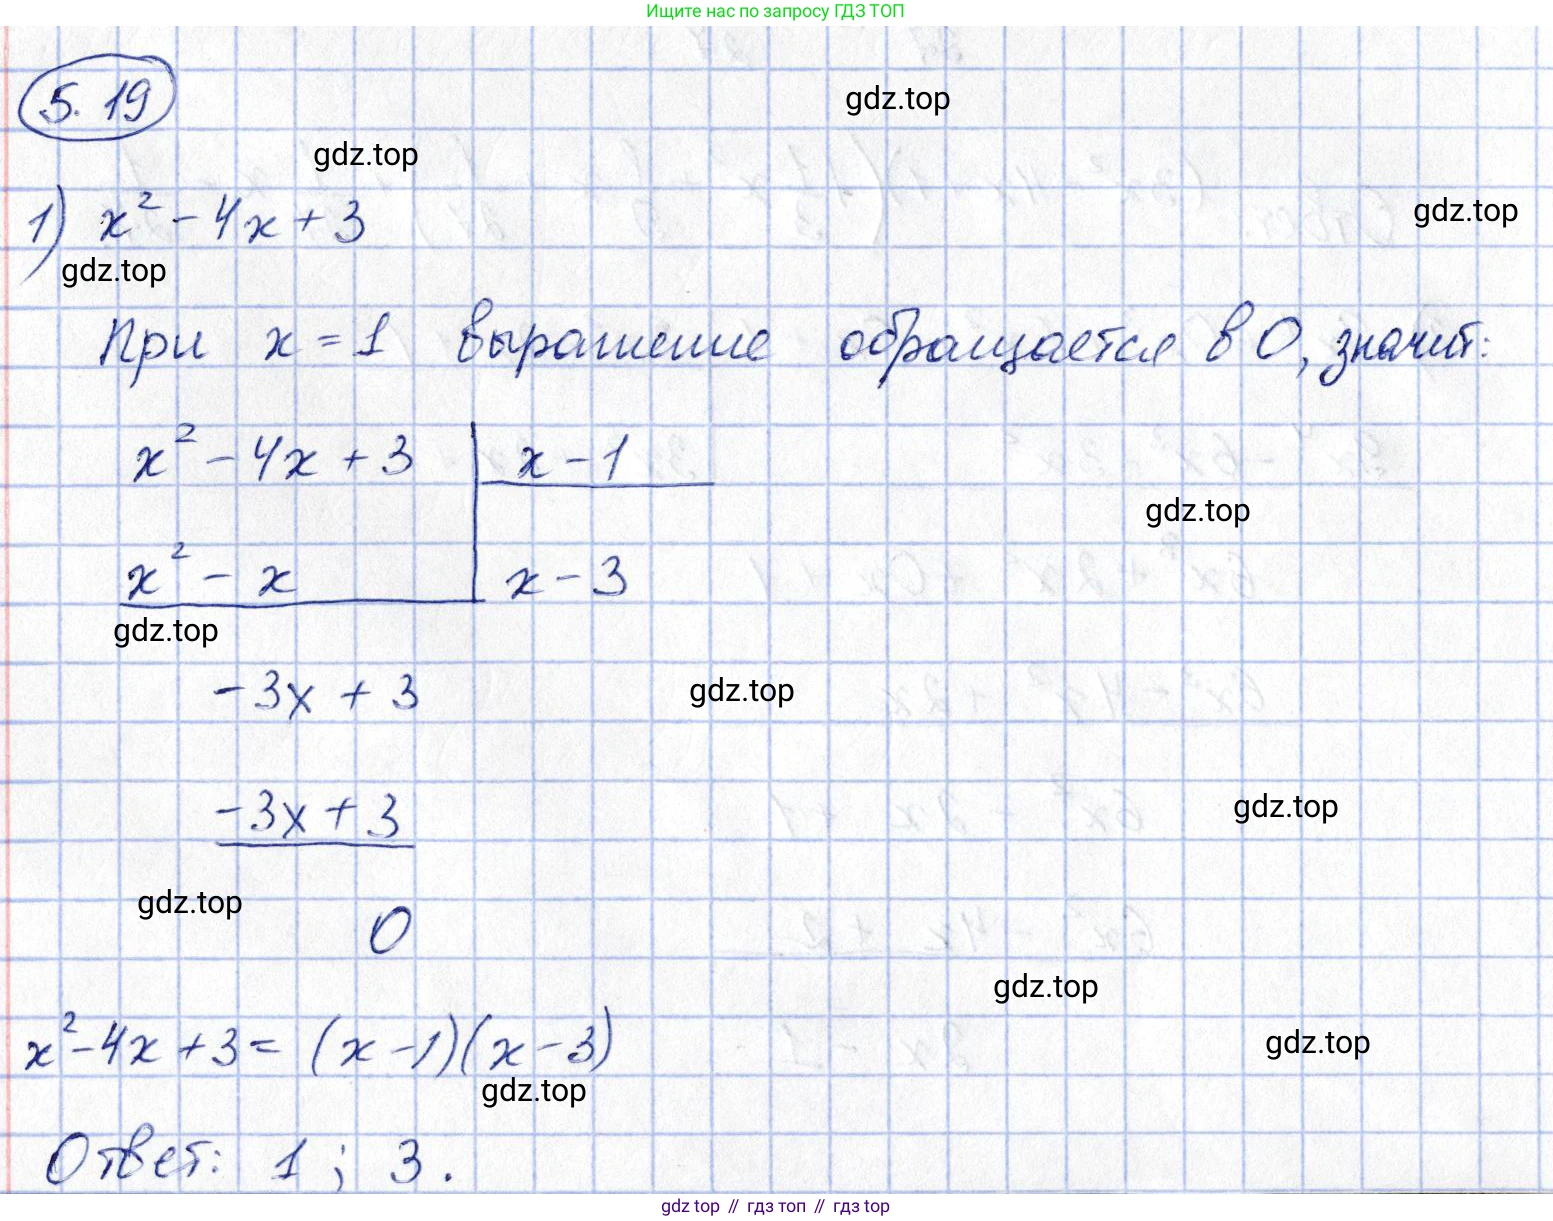 Ищите нас по запросу ГДЗ ТОП
5.19
gdz.top
gdz.top
1) x² - 4x + 3
gdz.top
gdz.top
При x = 1 выражение обращается в 0, значит:
x² - 4x + 3 | x - 1
gdz.top
x² - x | x - 3
gdz.top
-3x + 3
gdz.top
-3x + 3
gdz.top
gdz.top
0
gdz.top
x² - 4x + 3 = (x - 1)(x - 3)
gdz.top
gdz.top
Ответ: 1; 3.
gdz.top // гдз топ // гдз top